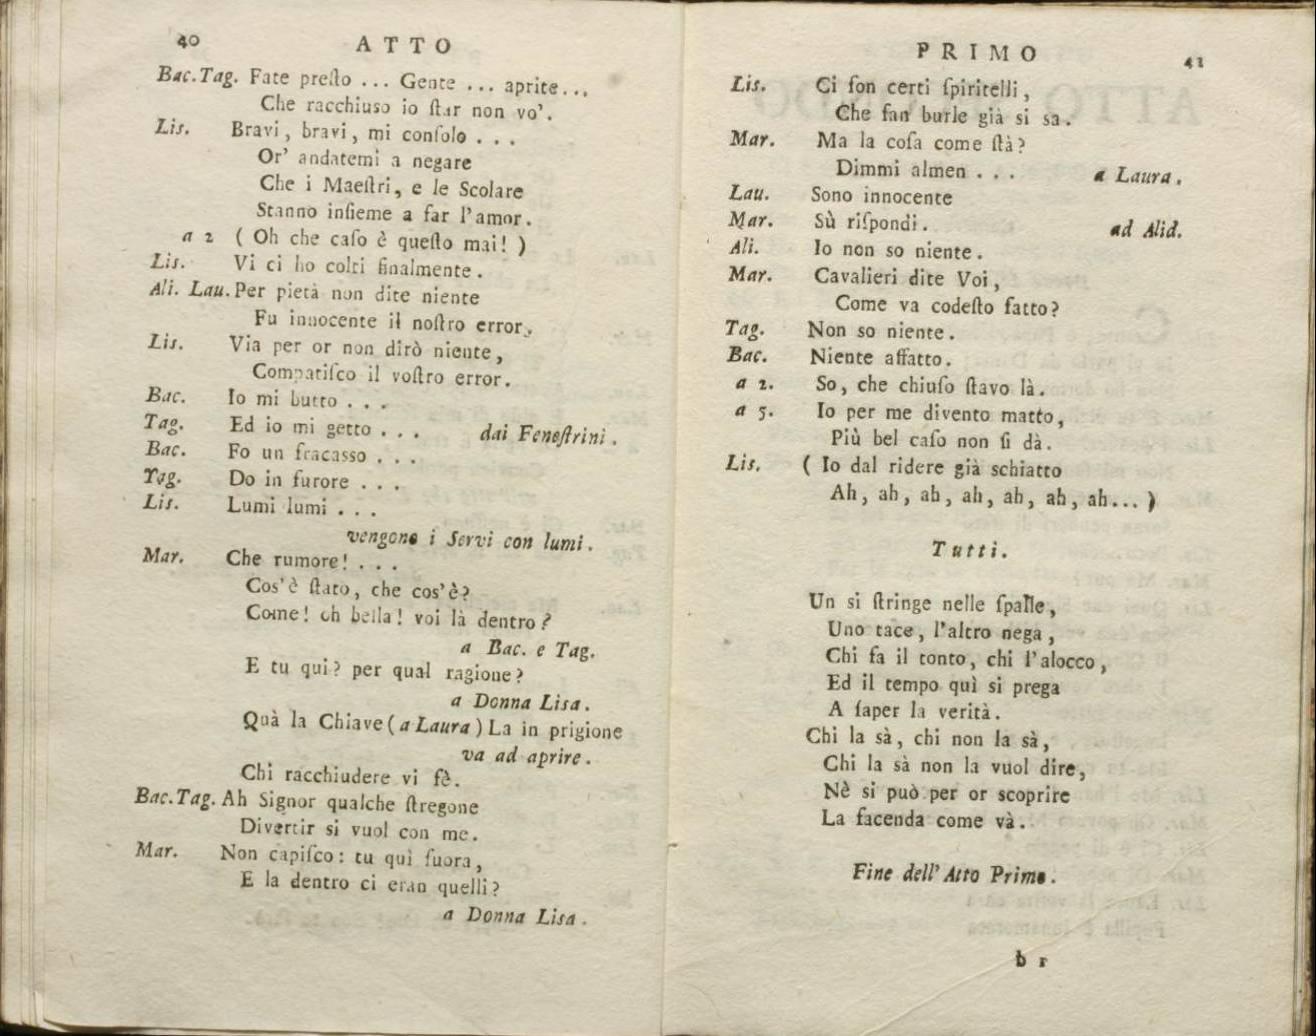 40 ATTO
Bac.Tag. Fate preſto ... Gente ... aprite...
Che racchiuso io ſtar non vo'.
Lis. Bravi, bravi, mi conſolo ...
Or' andatemi a negare
Che i Maeſtri, e le Scolare
Stanno inſieme a far l'amor.
a 2 ( Oh che caſo è queſto mai! )
Lis. Vi ci ho colti finalmente.
Ali. Lau. Per pietà non dite niente
Fu innocente il noſtro error.
Lis. Via per or non dirò niente,
Compatiſco il voſtro error.
Bac. Io mi butto ...
Tag. Ed io mi getto ... dai Feneſtrini.
Bac. Fo un fracasso ...
Tag. Do in furore ...
Lis. Lumi lumi ...
vengono i Servi con lumi.
Mar. Che rumore! ...
Cos'è ſtato, che cos'è?
Come! oh bella! voi là dentro?
a Bac. e Tag.
E tu qui? per qual ragione?
a Donna Lisa.
Quà la Chiave (a Laura) La in prigione
va ad aprire.
Chi racchiudere vi fè.
Bac.Tag. Ah Signor qualche ſtregone
Divertir si vuol con me.
Mar. Non capiſco: tu quì fuora,
E la dentro ci eran quelli?
a Donna Lisa.
PRIMO 41
Lis. Ci ſon certi ſpiritelli,
Che fan burle già si sa.
Mar. Ma la coſa come ſtà?
Dimmi almen ... a Laura.
Lau. Sono innocente
Mar. Sù riſpondi. ad Alid.
Ali. Io non so niente.
Mar. Cavalieri dite Voi,
Come va codeſto fatto?
Tag. Non so niente.
Bac. Niente affatto.
a 2. So, che chiuſo ſtavo là.
a 5. Io per me divento matto,
Più bel caſo non ſi dà.
Lis. ( Io dal ridere già schiatto
Ah, ah, ah, ah, ah, ah, ah... )
Tutti.
Un si ſtringe nelle ſpalle,
Uno tace, l'altro nega,
Chi fa il tonto, chi l'alocco,
Ed il tempo quì si prega
A ſaper la verità.
Chi la sà, chi non la sà,
Chi la sà non la vuol dire,
Nè si può per or scoprire
La facenda come và.
Fine dell' Atto Primo.
b 1